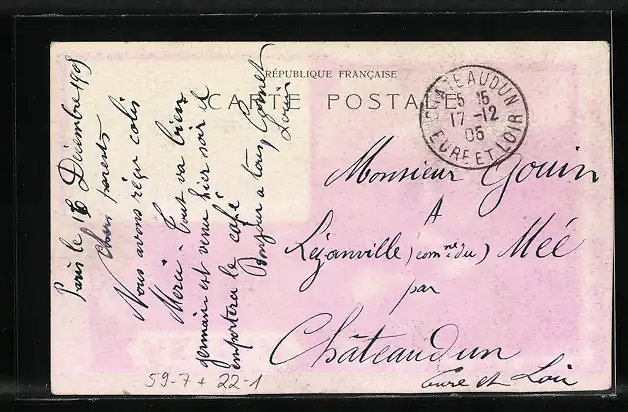 RÉPUBLIQUE FRANÇAISE
CARTE POSTALE
CHATEAUDUN
5 15
17 -12
05
EURE ET LOIR
Paris le 16 Décembre 1905
Chers parents
Nous avons reçu colis
Merci - Tout va bien
germain est venu hier soir il
emportera le café
Bonjour a tous
Louis
Monsieur Gouin
A
Lejanville (comne du) Méé
par
Châteaudun
Eure et Loir
59-7 + 22-1